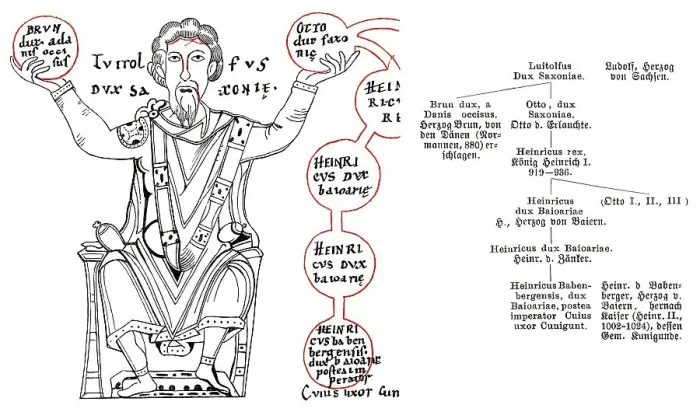 BRVN
dux a da
nis occi
sus
OTTO
dux saxo
nię
LVTTOL FVS
DVX SA XONIĘ.
HEIN
RI
RE
HEINRI
CVS DVX
baioarię
HEINRI
CVS DVX
baioarię
HEINRI
CVS baben
bergensis.
dux baioarię
postea im
perator
CVIVS uxor Cun
Luitolfus
Dux Saxoniae.
Ludolf, Herzog
von Sachsen.
Brun dux, a
Danis occisus.
Herzog Brun, von
den Dänen (Nor-
mannen, 880) er-
schlagen.
Otto, dux
Saxoniae.
Otto d. Erlauchte.
Heinricus rex.
König Heinrich I.
919—936.
Heinricus
dux Baioariae
H., Herzog von Baiern.
(Otto I., II., III)
Heinricus dux Baioariae.
Heinr. d. Zänker.
Heinricus Baben-
bergensis, dux
Baioariae, postea
imperator Cuius
uxor Cunigunt.
Heinr. d Baben-
berger, Herzog v.
Baiern, hernach
Kaiser (Heinr. II.,
1002-1024), dessen
Gem. Kunigunde.